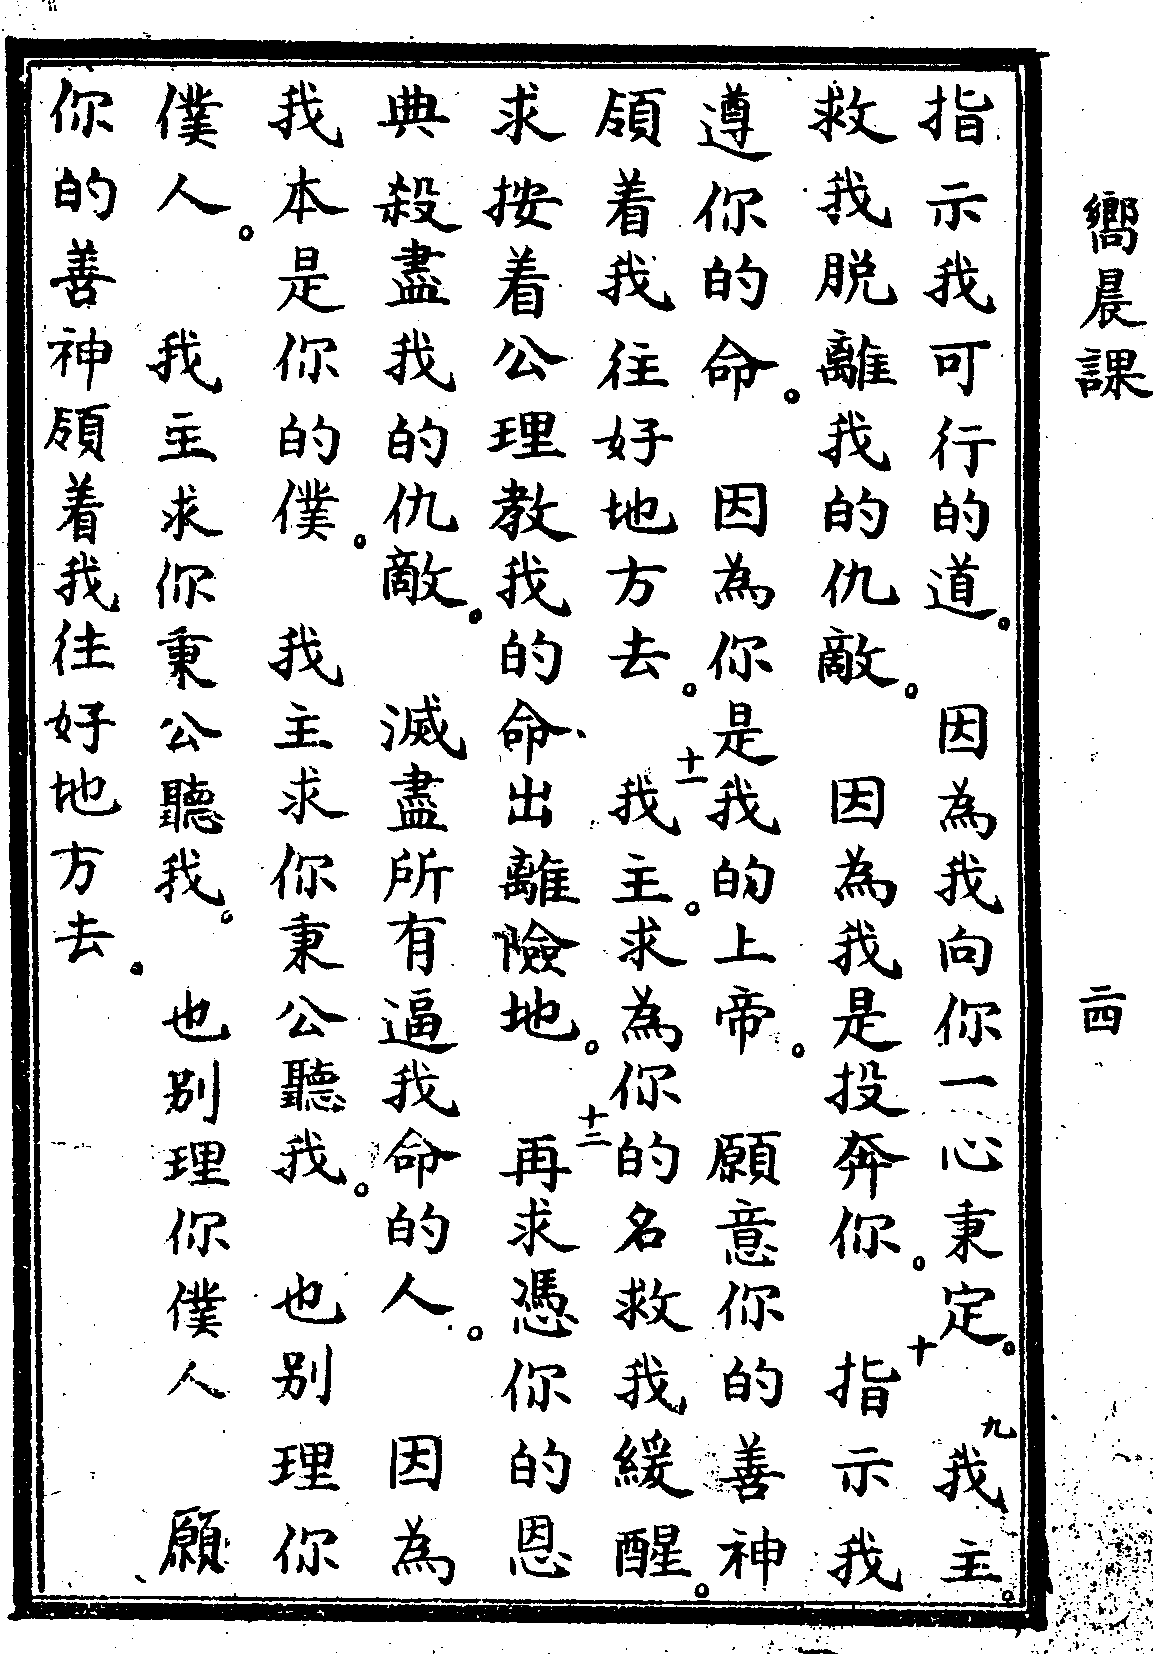 嚮晨課 二四
指示我可行的道。因為我向你一心秉定。九我主。
救我脱離我的仇敵。因為我是投奔你。十指示我
遵你的命。因為你是我的上帝。願意你的善神
領着我往好地方去。十一我主。求為你的名救我緩醒。
求按着公理教我的命出離險地。十二再求憑你的恩
典殺盡我的仇敵。滅盡所有逼我命的人。因為
我本是你的僕。我主求你秉公聽我。也别理你
僕人。我主求你秉公聽我。也别理你僕人 願
你的善神領着我往好地方去。